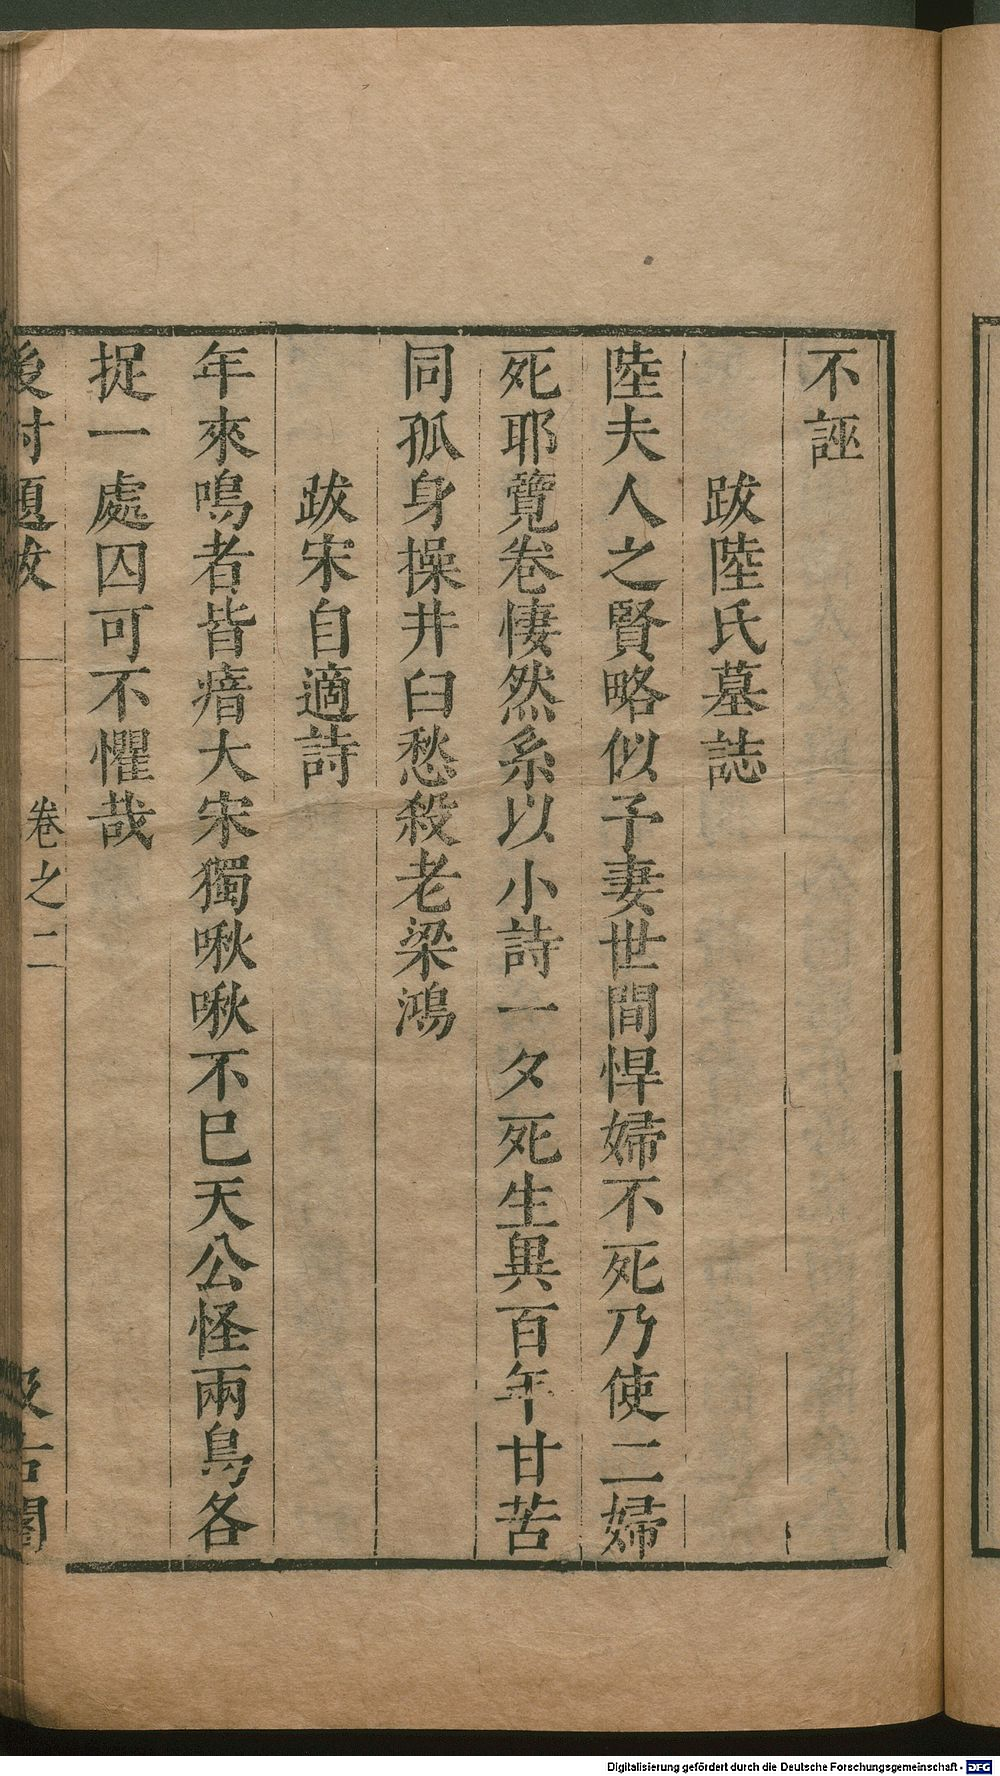 不誣
跋陸氏墓誌
陸夫人之賢略似予妻世間悍婦不死乃使二婦
死耶覽卷悽然系以小詩一夕死生異百年甘苦
同孤身操井臼愁殺老梁鴻
跋宋自適詩
年來鳴者皆瘖大宋獨啾啾不巳天公怪兩鳥各
捉一處囚可不懼哉
後村題跋 卷之二 汲古閣
Digitalisierung gefördert durch die Deutsche Forschungsgemeinschaft - DFG